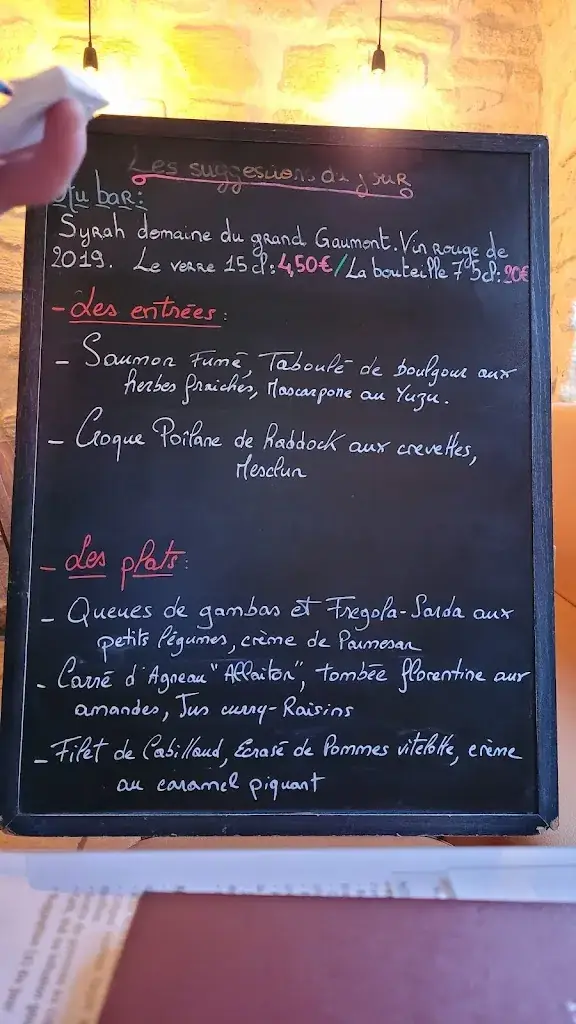 Les suggestions du jour
Au bar:
Syrah domaine du grand Gaumont. Vin rouge de
2019. Le verre 15cl: 4,50€/La bouteille 75cl: 20€
- Les entrées:
- Saumon Fumé, Taboulé de boulgour aux
herbes fraiches, Mascarpone au Yuzu.
- Croque Poîlane de haddock aux crevettes,
Mesclun
- Les plats:
- Queues de gambas et Fregola-Sarda aux
petits légumes, crème de Parmesan
- Carré d'Agneau "Allaiton", tombée florentine aux
amandes, Jus curry-Raisins
- Filet de Cabillaud, Ecrasé de Pommes vitelotte, crème
au caramel piquant